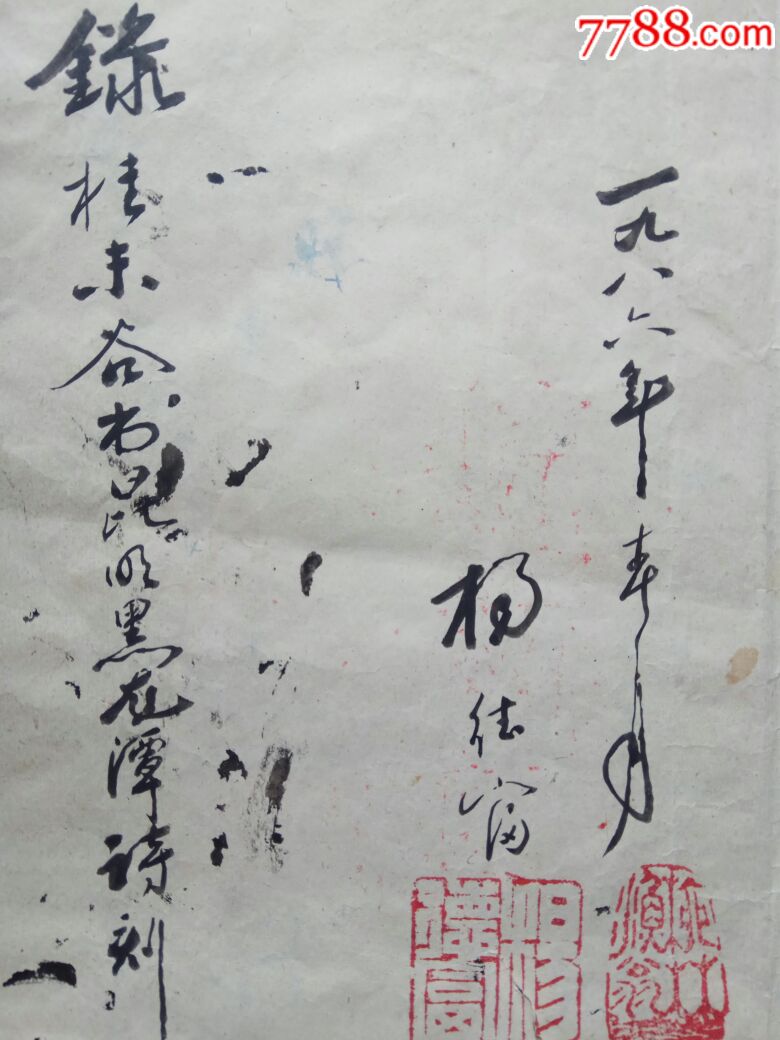 7788.com
一九八六年春月
杨德富
錄桂未谷书昆明黑龙潭诗刻